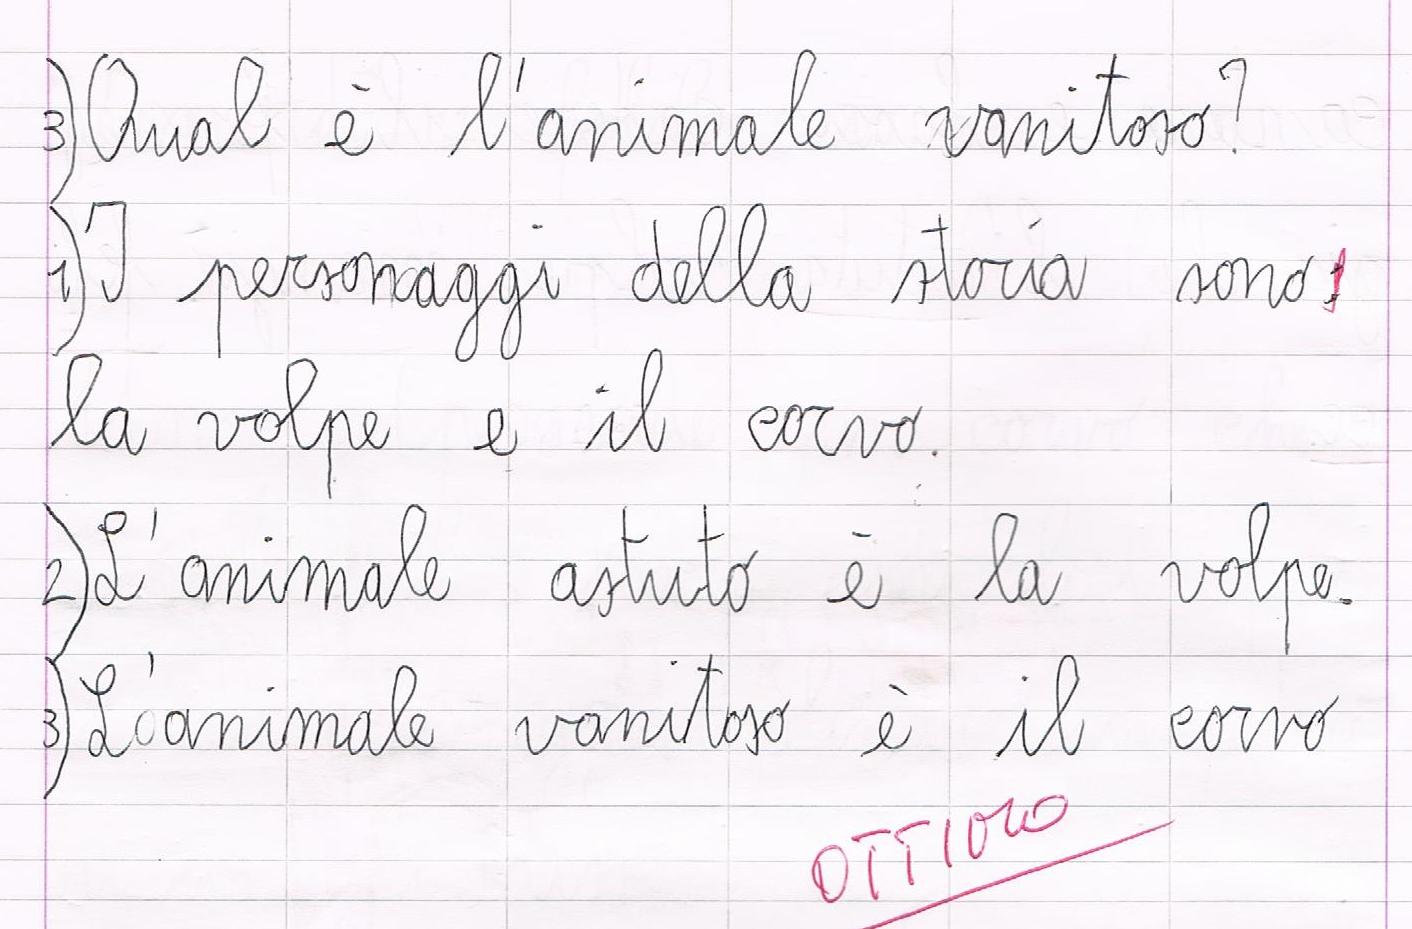 3) Qual è l'animale vanitoso?
1) I personaggi della storia sono:
la volpe e il corvo.
2) L'animale astuto è la volpe.
3) L'animale vanitoso è il corvo
OTTIMO